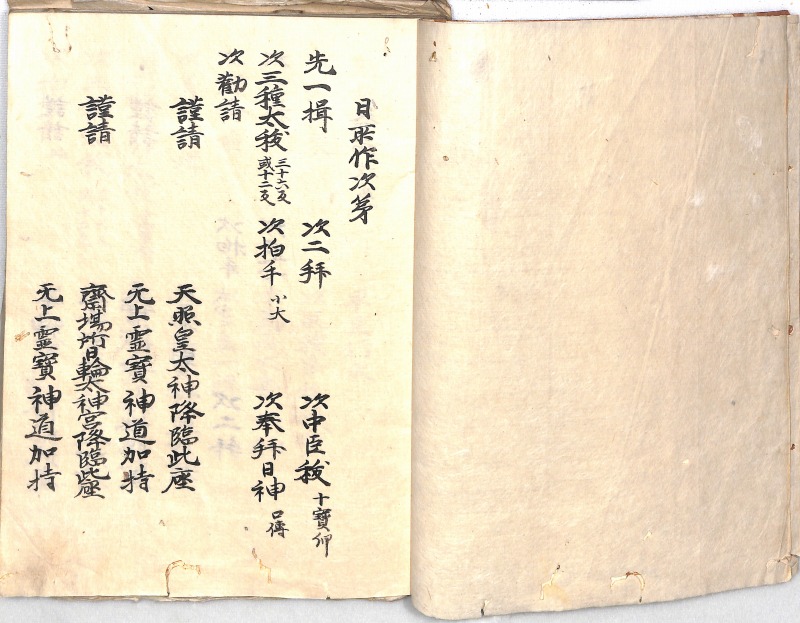 日所作次第
先一揖 次二拜 次中臣秡 十寶印
次三種太秡 三十六反 或十二反 次拍手 小大 次奉拜日神 口傳
次勸請
謹請 天照皇太神降臨此座
无上靈寶神道加持
謹請 齋場所日輪太神宮降臨此座
无上靈寶神道加持